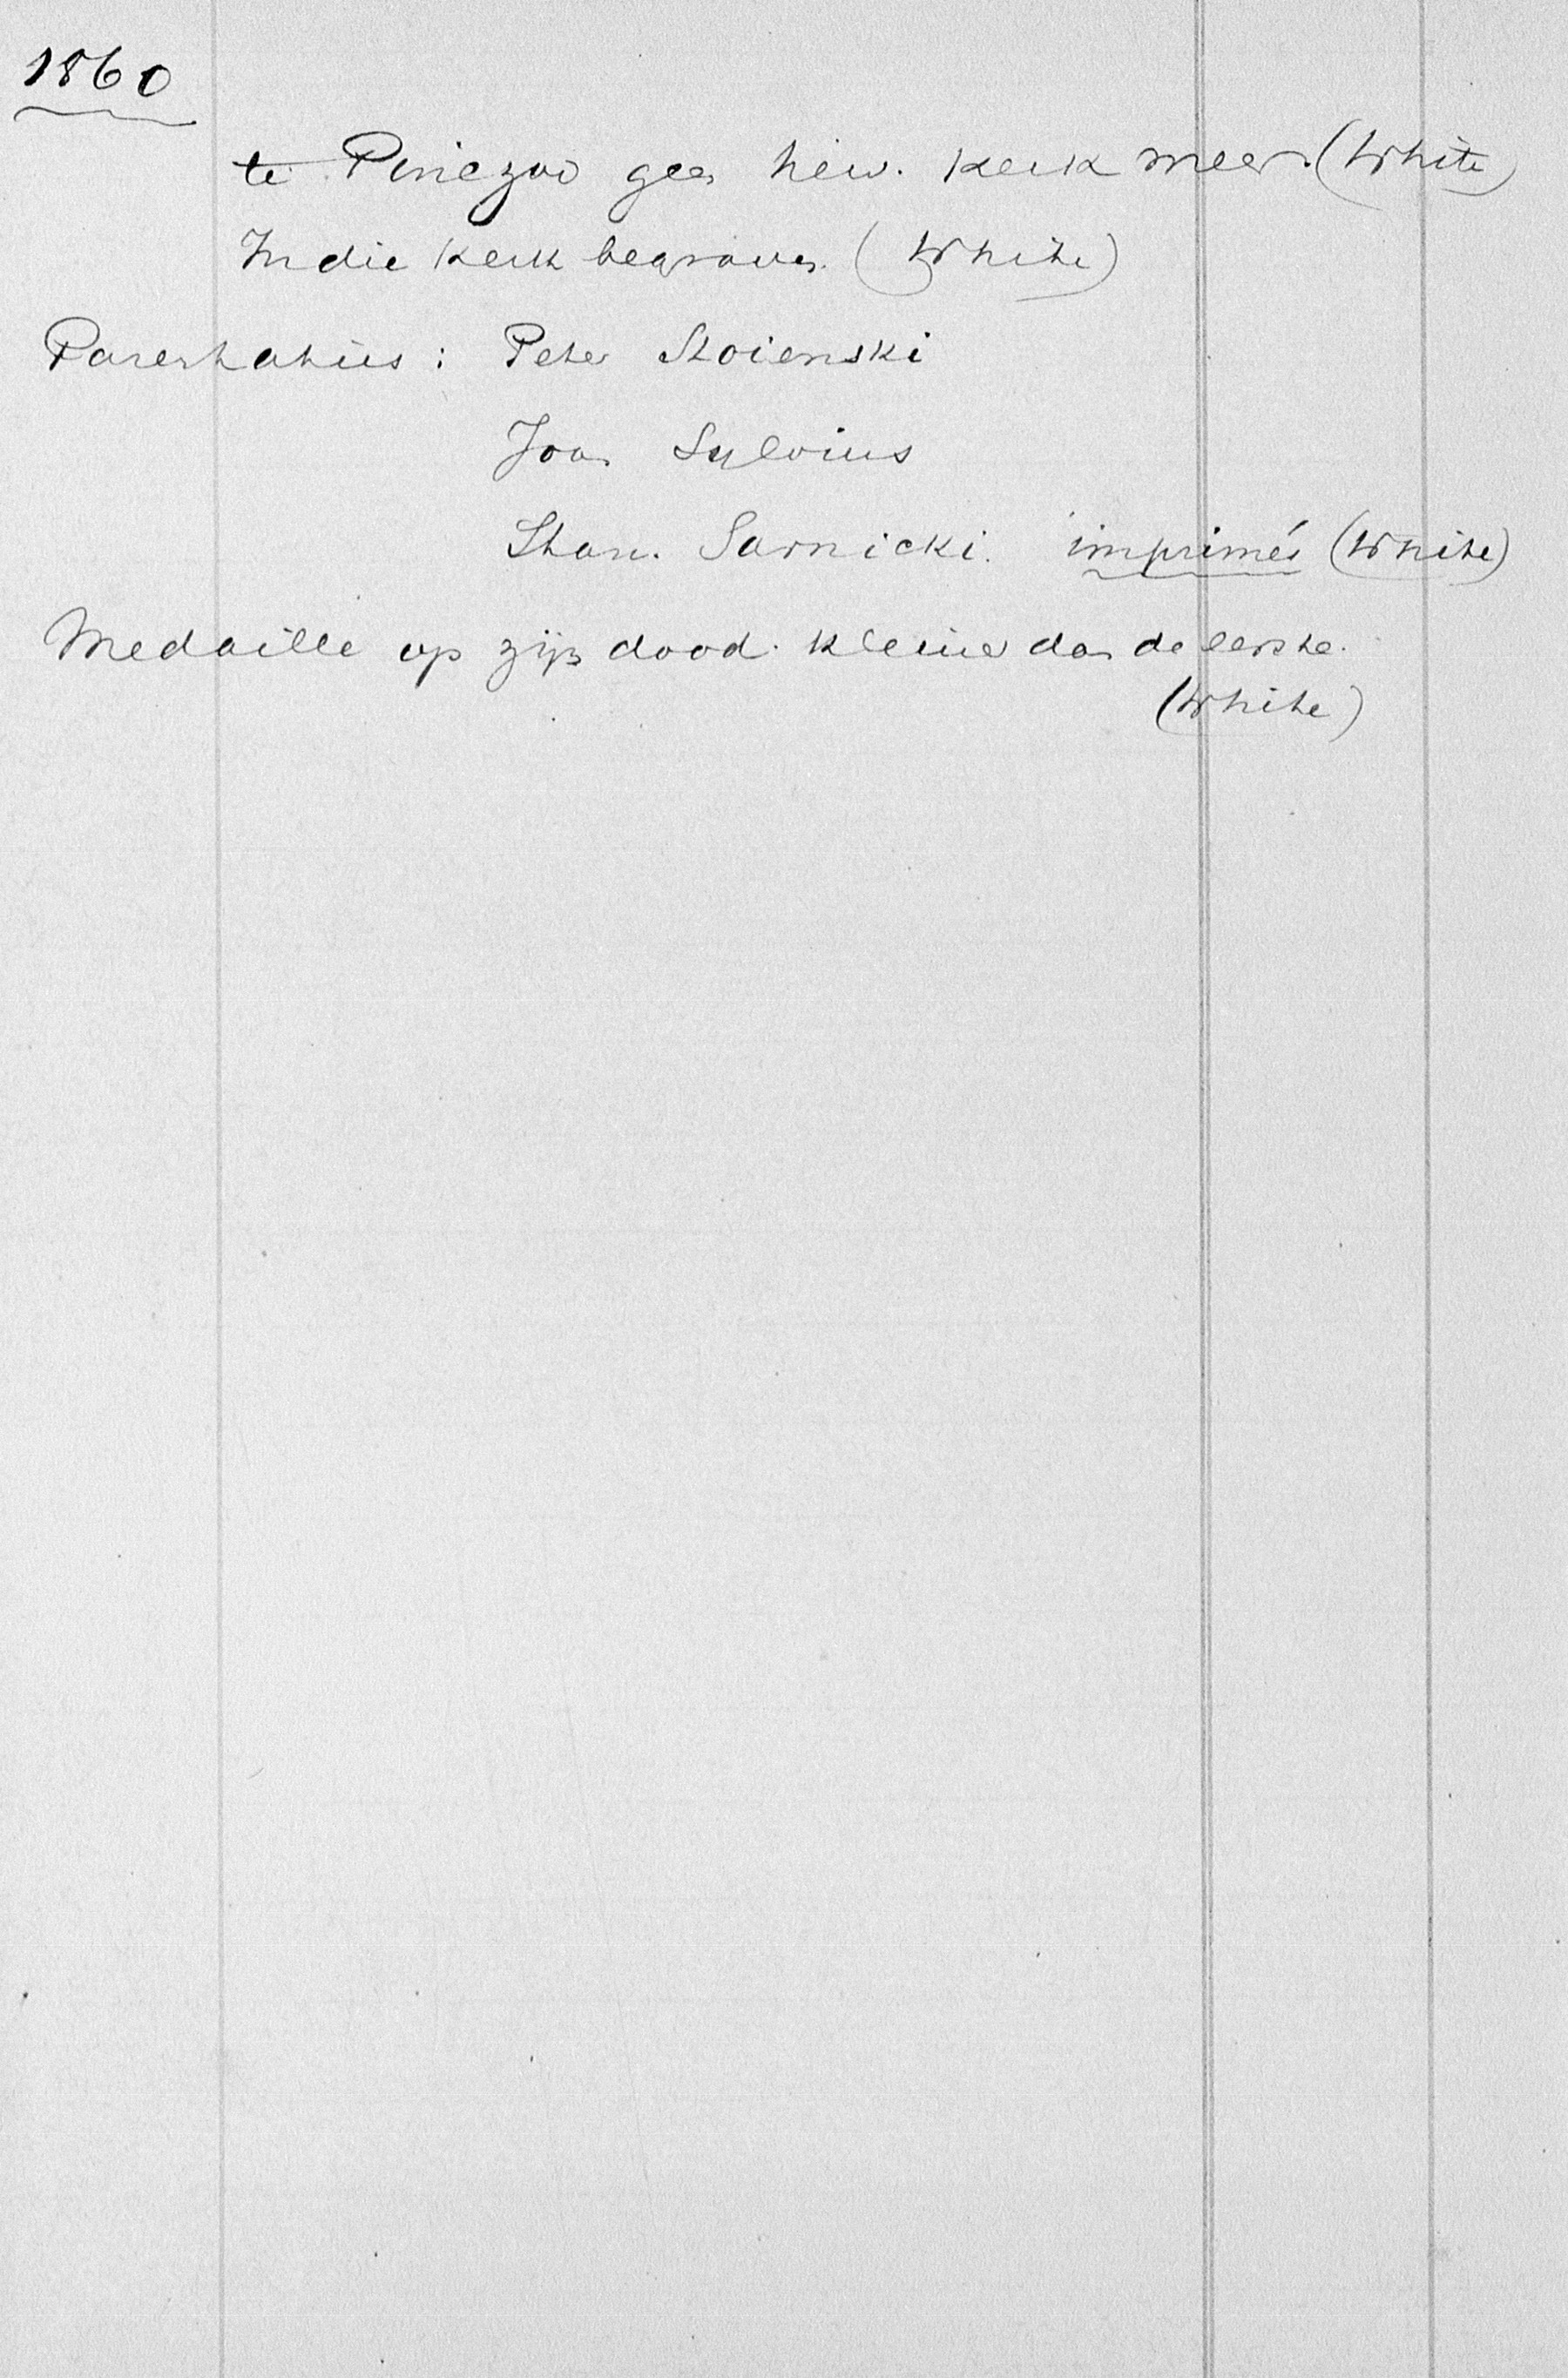 1860
te Pinczow geen herv. kerk meer. (White)
In die kerk begraven. (White)
Parentaties: Peter Stoienski
Joan Sylvius
Stan. Sarnicki. imprimés (White)
Medaille op zijn dood. kleiner dan de eerste.
(White)